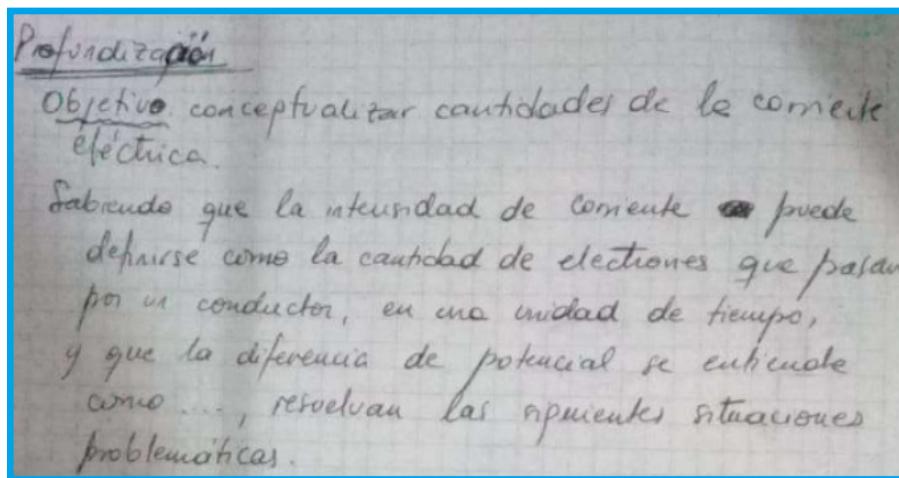 Profundización
Objetivo: conceptualizar cantidades de la corriente
eléctrica.
Sabiendo que la intensidad de corriente puede
definirse como la cantidad de electrones que pasan
por un conductor, en una unidad de tiempo,
y que la diferencia de potencial se entiende
como ..., resuelvan las siguientes situaciones
problemáticas.